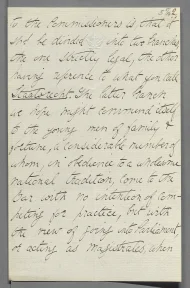 to the Commissioners is, that it
shd be divided into two branches
the one strictly legal, the other
having reference to what you call
Statecraft. The latter branch
we hope might commend itself
to the young men of family &
fortune, a considerable number of
whom, in obedience to a wholesome
national tradition, come to the
Bar with no intention of com-
peting for practice, but with
the view of going into Parliament
or acting as magistrates, when